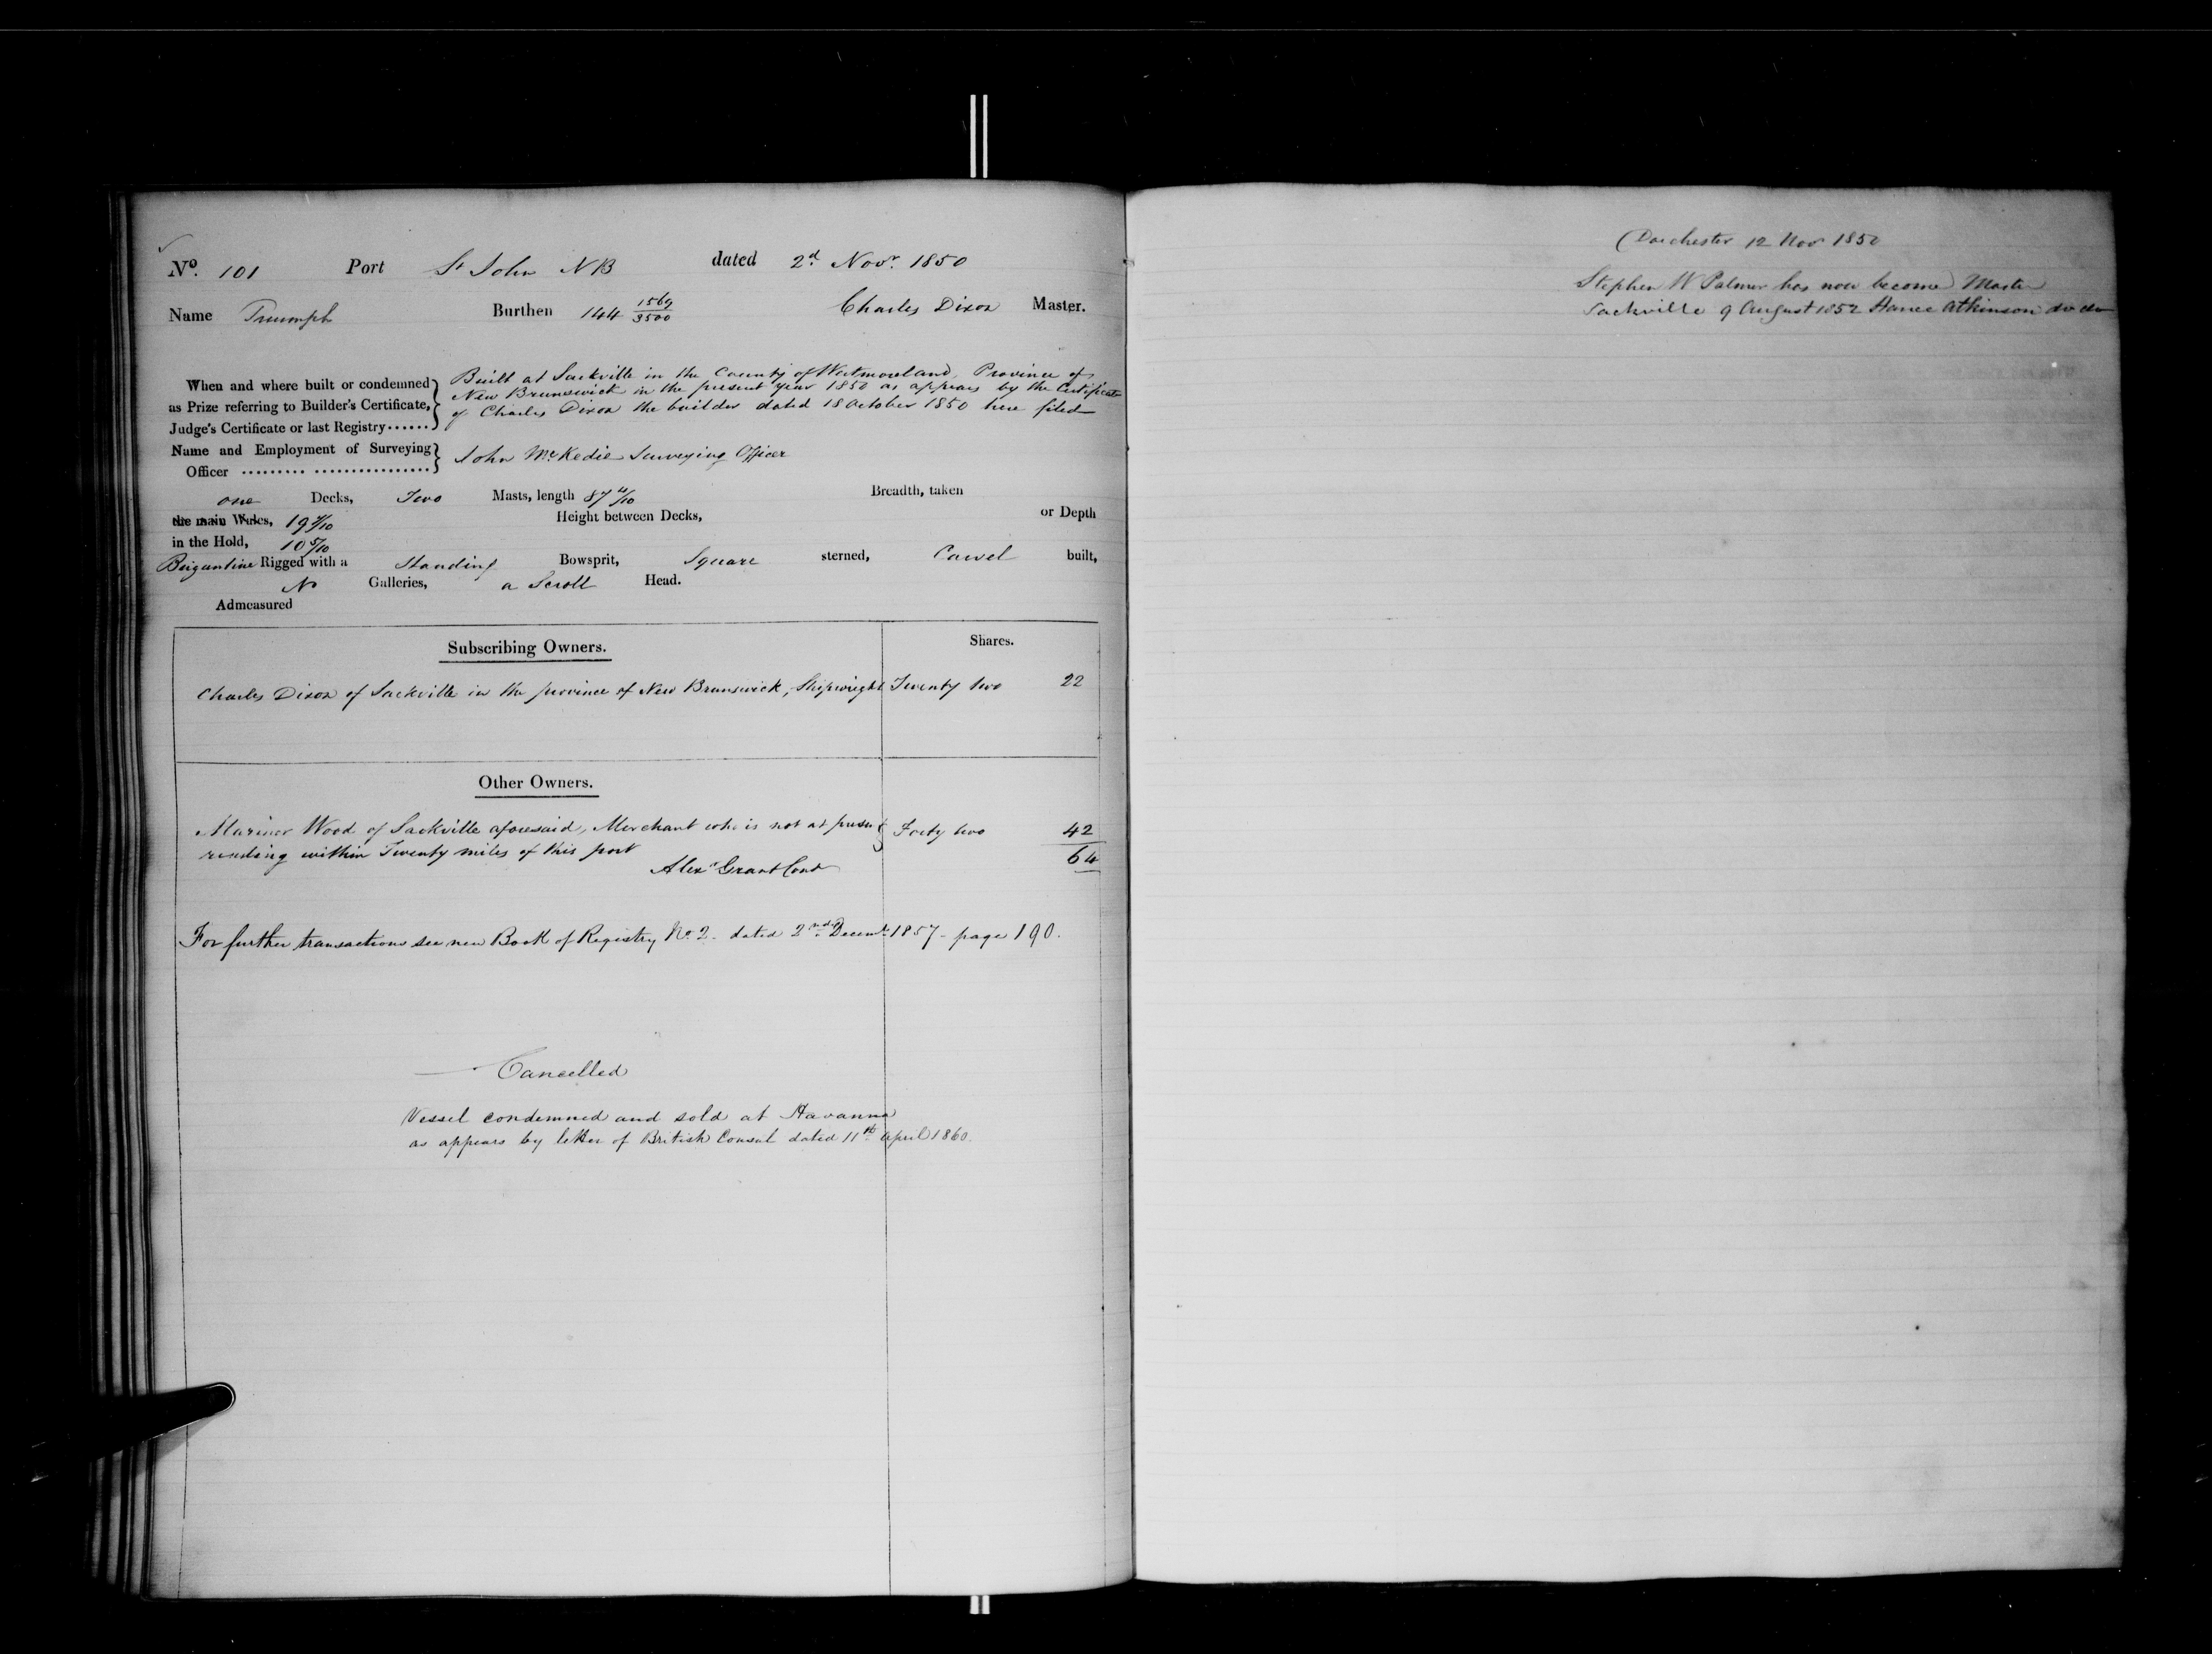 No. 101 Port St John NB dated 2d Novr. 1850
Name Triumph Burthen 144 1569/3500 Charles Dixon Master.
When and where built or condemned as Prize referring to Builder's Certificate, Judge's Certificate or last Registry......
Built at Sackville in the County of Westmoreland, Province of
New Brunswick in the present year 1850 as appears by the Certificate
of Charles Dixon the builder dated 18 October 1850 here filed
Name and Employment of Surveying Officer ......... ................
John McKedie Surveying Officer
one Decks, Two Masts, length 87 4/10 Breadth, taken
the main Wales, 19 7/10 Height between Decks, or Depth
in the Hold, 10 5/10
Brigantine Rigged with a Standing Bowsprit, Square sterned, Carvel built,
No Galleries, a Scroll Head.
Admeasured
Subscribing Owners. Shares.
Charles Dixon of Sackville in the province of New Brunswick, Shipwright Twenty two 22
Other Owners.
Mariner Wood of Sackville aforesaid, Merchant who is not at present Forty two 42
residing within Twenty miles of this port 64
Alexr Grant Cont
For further transactions see new Book of Registry No. 2. dated 2nd Decemr. 1857 - page 190.
Cancelled
Vessel condemned and sold at Havanna
as appears by letter of British Consul dated 11th April 1860.
Dorchester 12 Nov 1850
Stephen W Palmer has now become Master
Sackville 9 August 1852 Hance Atkinson do do